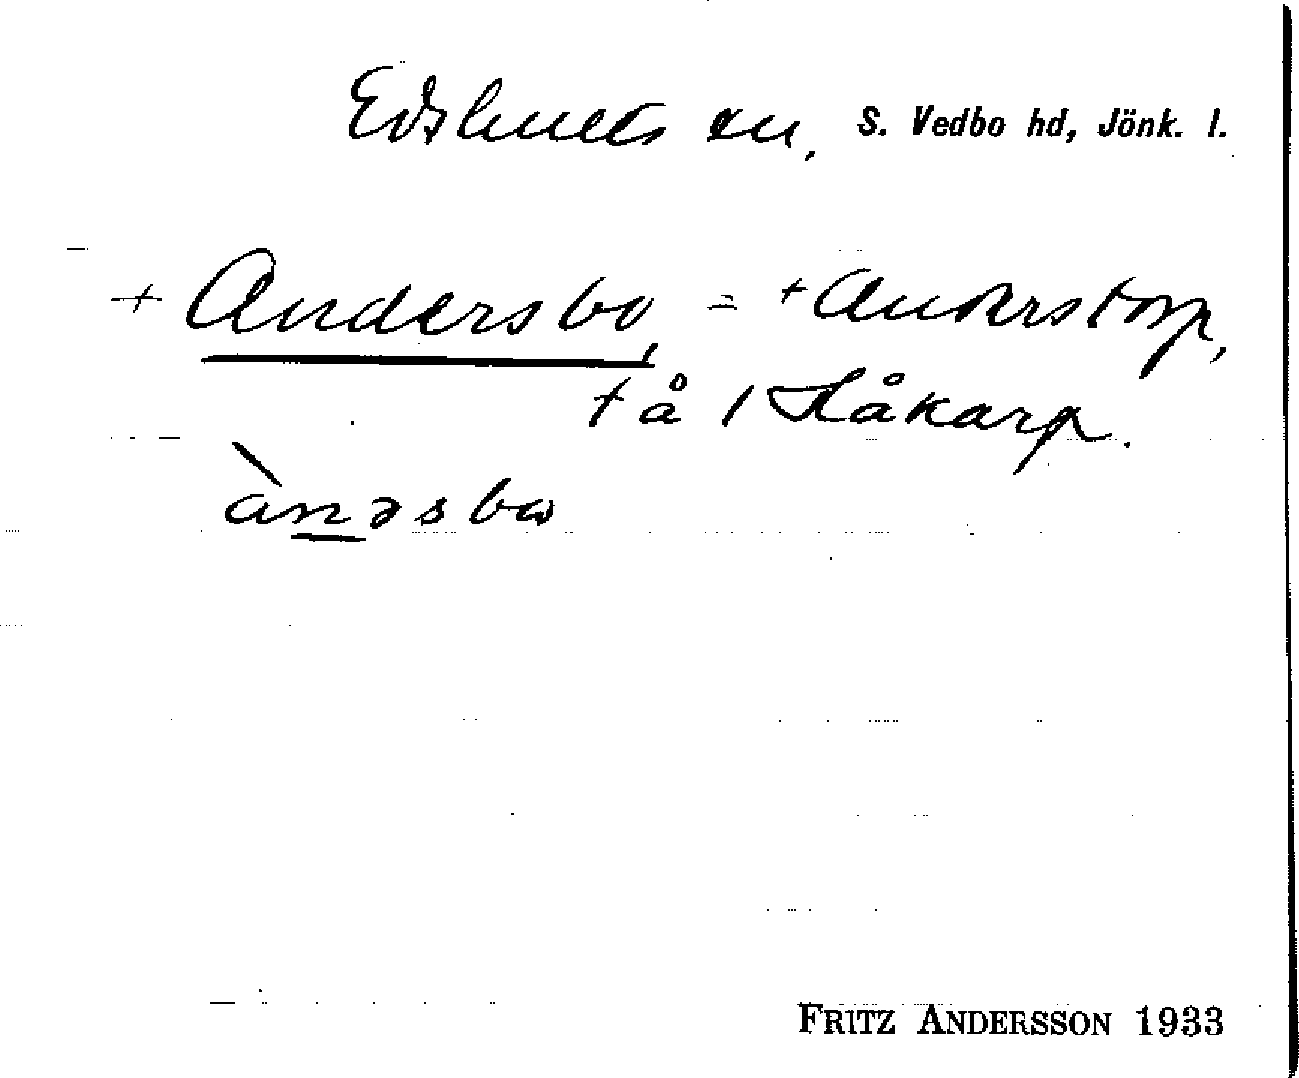 Edshults sn, S. Vedbo hd, Jönk. l.
+ Andersbo, = + Anderstorp,
t å / Håkarp.
ànəsbω
FRITZ ANDERSSON 1933